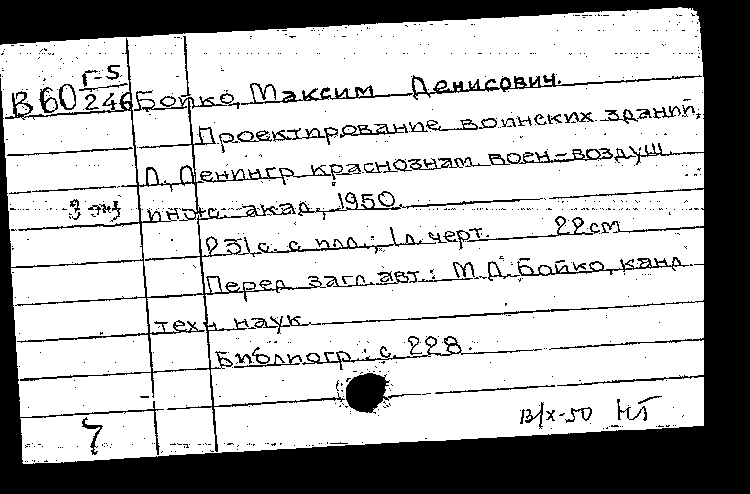 Г-5
В60 246 Бойко, Максим Денисович.
Проектирование воинских зданий.
Л., Ленингр. краснознам. воен-воздуш.
3 экз инж. акад., 1950.
231 с. с илл.; 1 л. черт. 22 см
Перед загл. авт.: М.Д. Бойко, канд.
техн. наук.
Библиогр.: с. 228.
13/X-50 НБ
7